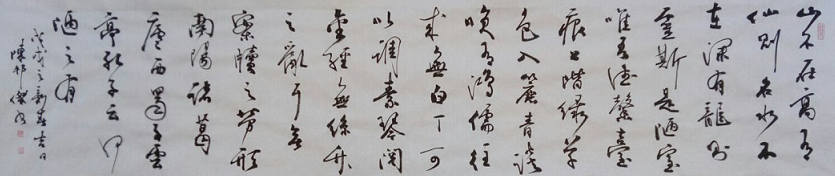 山不在高有
仙则名水不
在深有龍则
靈斯是陋室
唯吾德馨臺
痕上階绿草
色入簾青談
咲有鴻儒往
来無白丁可
以调素琴阅
金經無絲竹
之亂耳無
案牘之劳形
南陽諸葛
廬西蜀子雲
亭孔子云何
陋之有
之新春吉日
陳邦傑